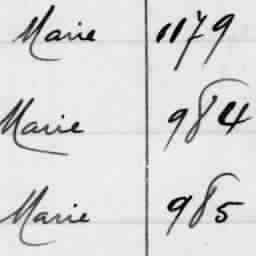 Marie 1179
Marie 984
Marie 985